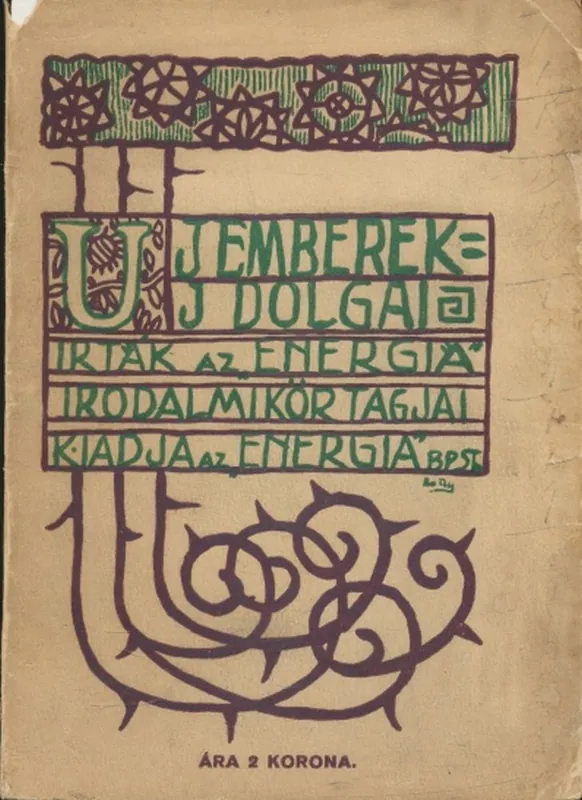 UJ EMBEREK=
J DOLGAI
IRTÁK AZ „ENERGIA”
IRODALMI KÖR TAGJAI
KIADJA AZ „ENERGIA” BPST.
ÁRA 2 KORONA.